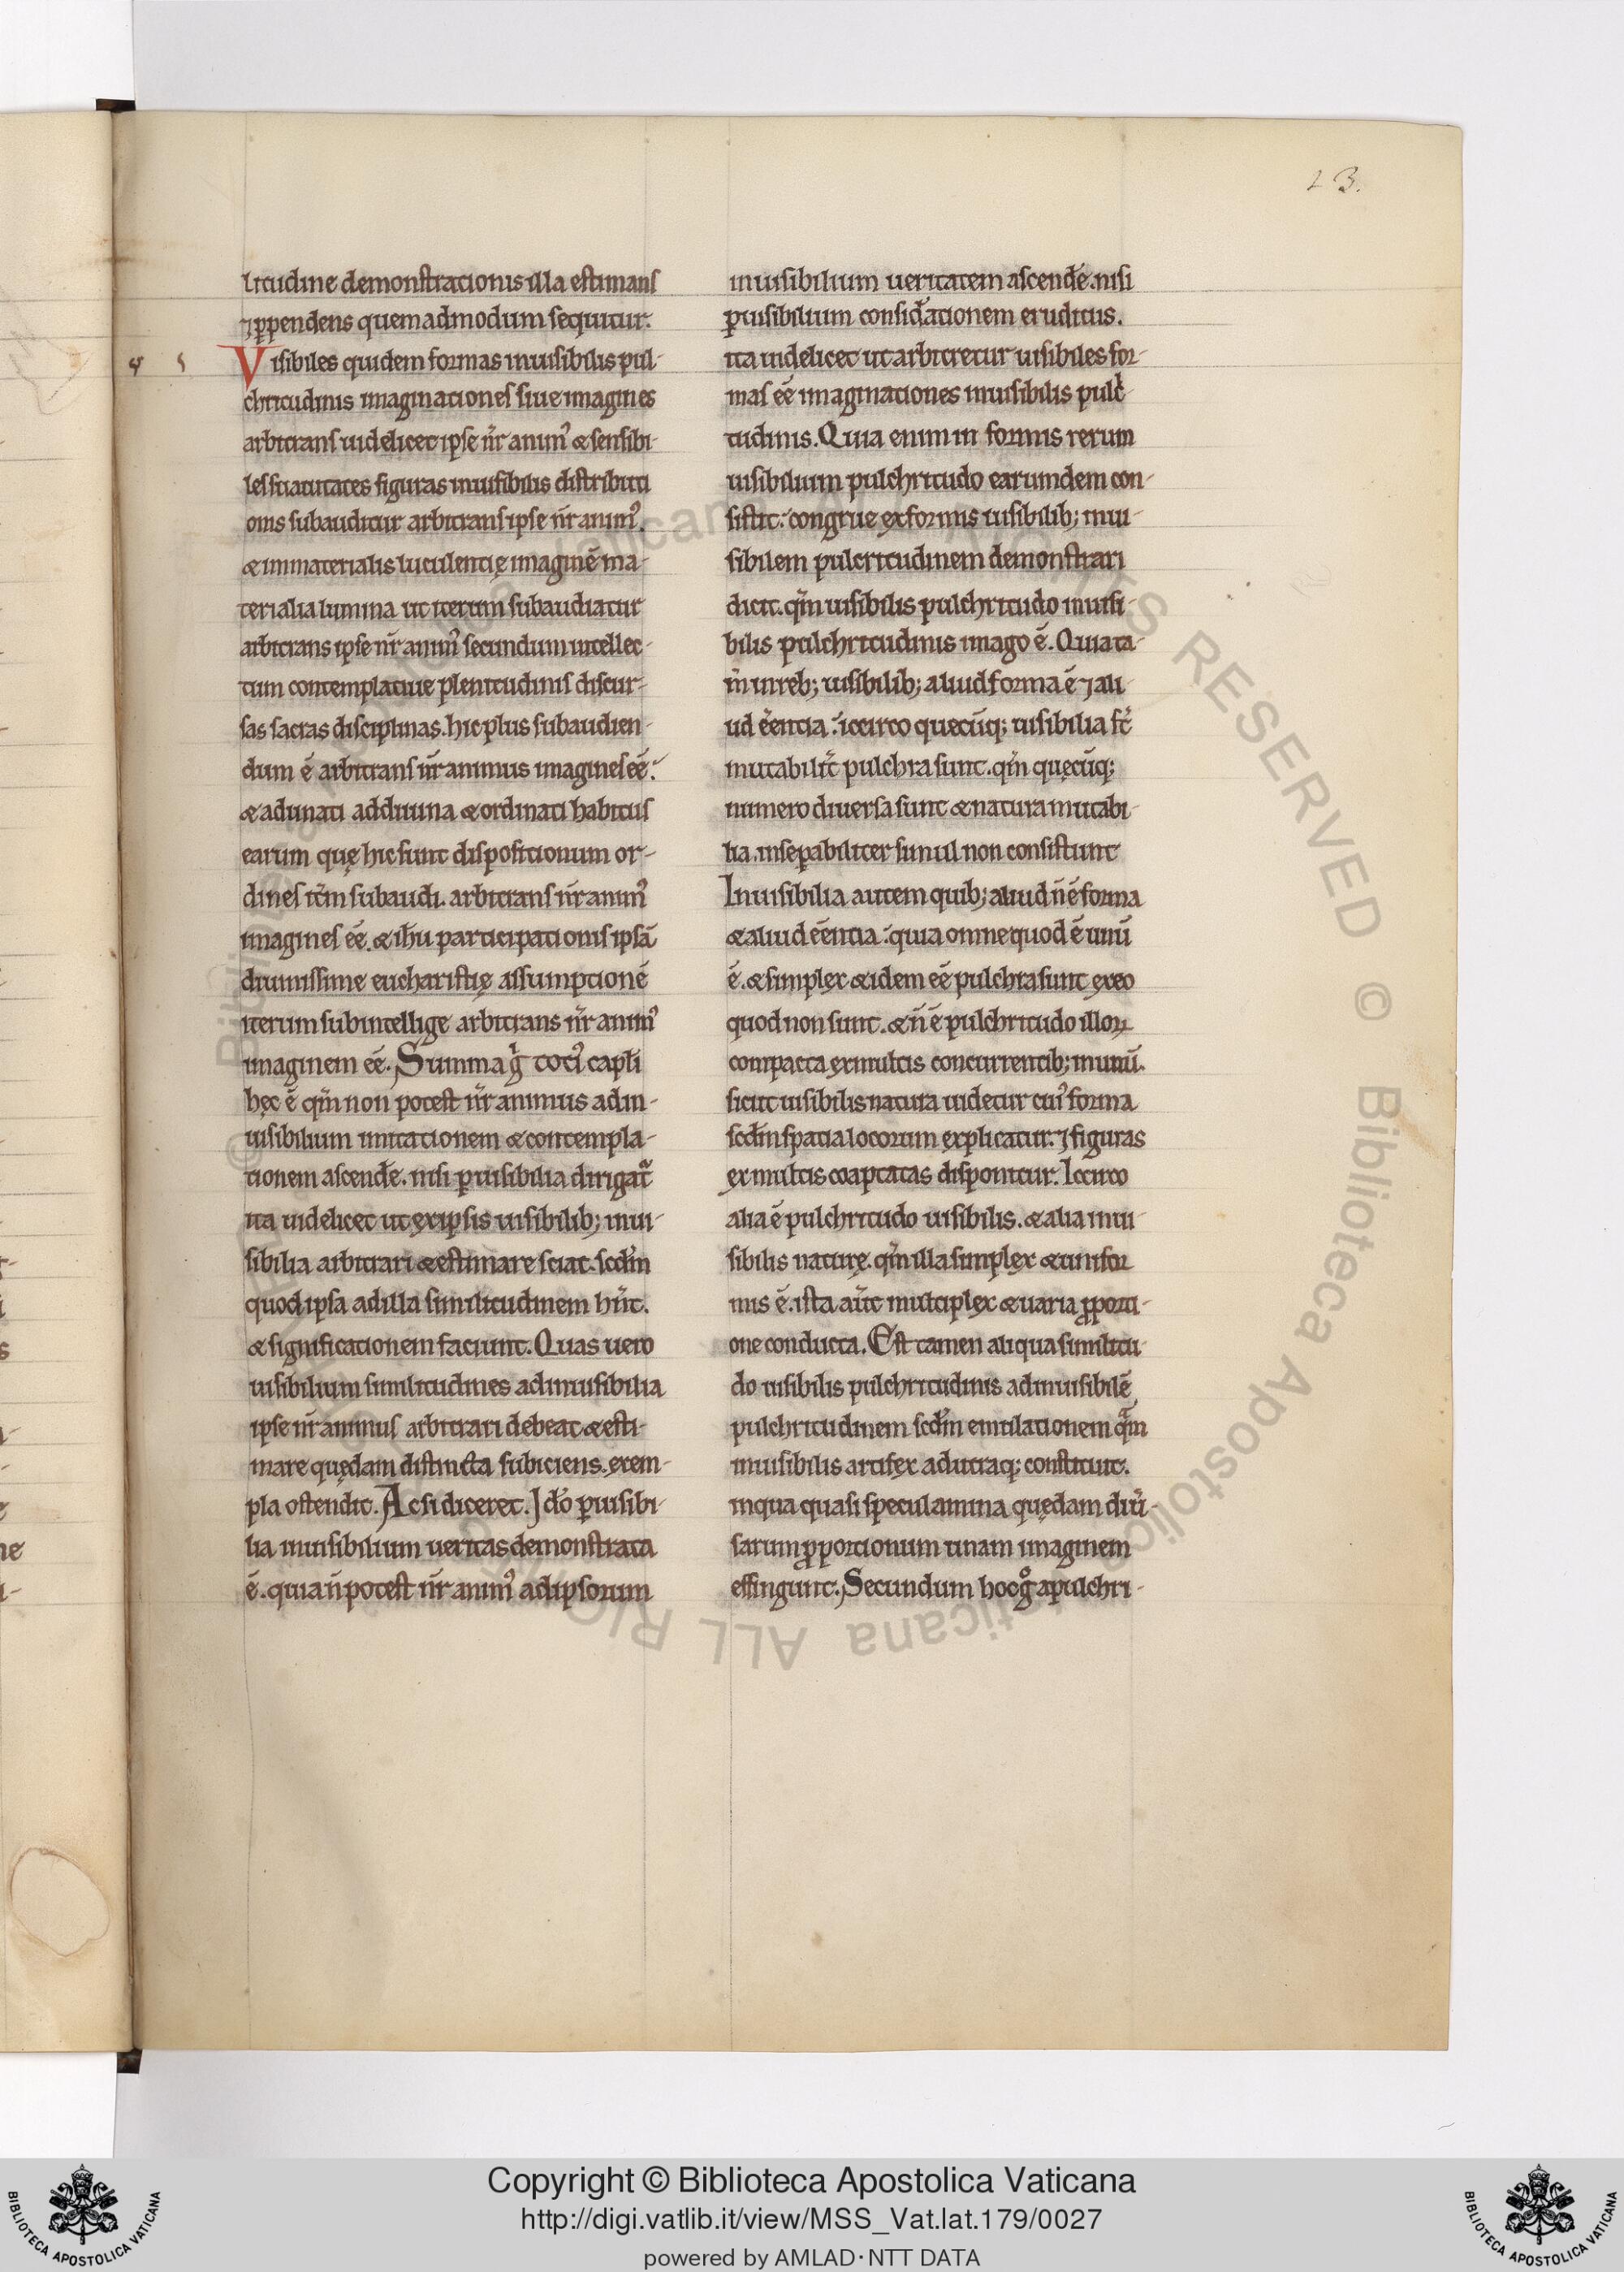 23.
litudine demonstrationis illa estimans
⁊ p̱pendens quemadmodum sequitur.
Visibiles quidem formas inuisibilis pul-
chritudinis imaginationes siue imagines
arbitrans uidelicet ipse nr̄ animꝰ & sensibi-
les suauitates figuras inuisibilis distributi
onis subauditur arbitrans ipse nr̄ animꝰ.
& immaterialis luculentię imaginē ma-
terialia lumina ut iterum subaudiatur
arbitrans ipse nr̄ animꝰ secundum intellec-
tum contemplatiue plenitudinis discur-
sas sacras disciplinas. hic plus subaudien-
dum ē arbitrans nr̄ animus imagines eē.
& adunati ad diuina & ordinati habitus
earum quę hic sunt dispositionum or-
dines itm̄ subaudi. arbitrans nr̄ animꝰ
imagines eē. & ih̄u participationis ipsā
diuinissime eucharistię assumptionē
iterum subintellige arbitrans nr̄ animꝰ
imaginem eē. Summa gͥ totiꝰ capl̄i
hęc ē qm̄ non potest nr̄ animus ad in-
uisibilium imitationem & contempla-
tionem ascende͛. nisi ꝑ uisibilia dirigat᷑
ita uidelicet ut ex ipsis uisibilib; inui-
sibilia arbitrari & estimare sciat. scd̄m
quod ipsa ad illa similitudinem hn̄t.
& significationem faciunt. Quas uero
uisibilium similitudines ad inuisibilia
ipse nr̄ animus arbitrari debeat & esti-
mare quędam distincta subiciens. exem-
pla ostendit. Ac si diceret. Idō ꝑ uisibi-
lia inuisibilium ueritas demonstrata
ē. quia n̄ potest nr̄ animꝰ ad ipsorum
inuisibilium ueritatem ascende͛. nisi
ꝑ uisibilium consid͛ationem eruditus.
ita uidelicet ut arbitretur uisibiles for-
mas eē imaginationes inuisibilis pulch̄-
tudinis. Quia enim in formis rerum
uisibilium pulchritudo earumdem con-
sistit: congrue ex formis uisibilib; inui-
sibilem pulcritudinem demonstrari
dicit. qm̄ uisibilis pulchritudo inuisi-
bilis pulchritudinis imago ē. Quia ta-
m̄ in reb; uisibilib; aliud forma ē ⁊ ali-
ud eēntia: iccirco quecūq; uisibilia st̄
mutabilit᷑ pulchra sunt. qm̄ quęcūq;
numero diuersa sunt & natura mutabi-
lia. insepabiliter simul non consistunt
Inuisibilia autem quib; aliud n̄ ē forma
& aliud eēntia: quia omne quod ē unū
ē. & simplex & idem eē pulchra sunt ex eo
quod non sunt. & n̄ ē pulchritudo illoꝝ
compacta ex multis concurrentib; in unū.
sicut uisibilis natura uidetur cuiꝰ forma
scd̄m spatia locorum explicatur. ⁊ figuras
ex multis coaptatas disponitur. Iccirco
alia ē pulchritudo uisibilis. & alia inui-
sibilis naturę. qm̄ illa simplex & unifor
mis ē. ista aūt multiplex & uaria ꝓporti-
one conducta. Est tamen aliqua similitu-
do uisibilis pulchritudinis ad inuisibilē
pulchritudinem scd̄m emulationem qᵃm
inuisibilis artifex ad utraq; constituit.
in qua quasi speculamina quędam diu͛-
sarum ꝓportionum unam imaginem
effingunt. Secundum hoc gͦ a pulchri-
© Biblioteca Apostolica Vaticana ALL RIGHTS RESERVED © Biblioteca Apostolica Vaticana ALL RIGHTS RESERVED
Copyright © Biblioteca Apostolica Vaticana
http://digi.vatlib.it/view/MSS_Vat.lat.179/0027
powered by AMLAD·NTT DATA
BIBLIOTECA APOSTOLICA VATICANA
BIBLIOTECA APOSTOLICA VATICANA